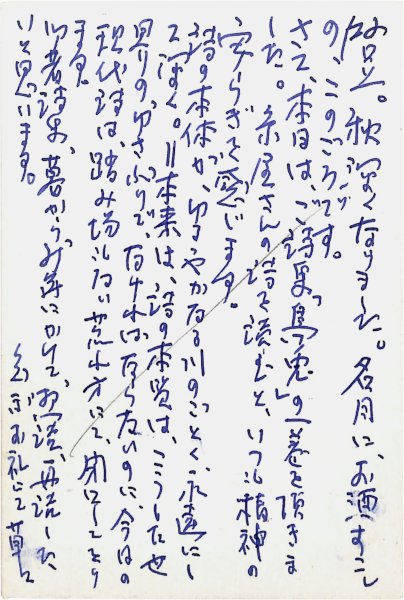 拝呈。秋深くなりました。名月に、お酒すこし
の、このごろです。
さて、本日は、ご詩集『烏兎』の一巻を頂きま
した。糸屋さんの詩を読むと、いつも精神の
安らぎを感じます。
詩の本体が、ゆるやかなる川のごとく、永遠にし
て深く。〃本来は、詩の本質は、こうした也
見りの、ゆさぶりで、なければならないのに、今日の
現代詩は、踏み場もない荒れ方にて、閉口しており
ます。
御著詩集、暮から新年にかけて、拝読、再読した
いと思います。
忽々お礼にて 草々